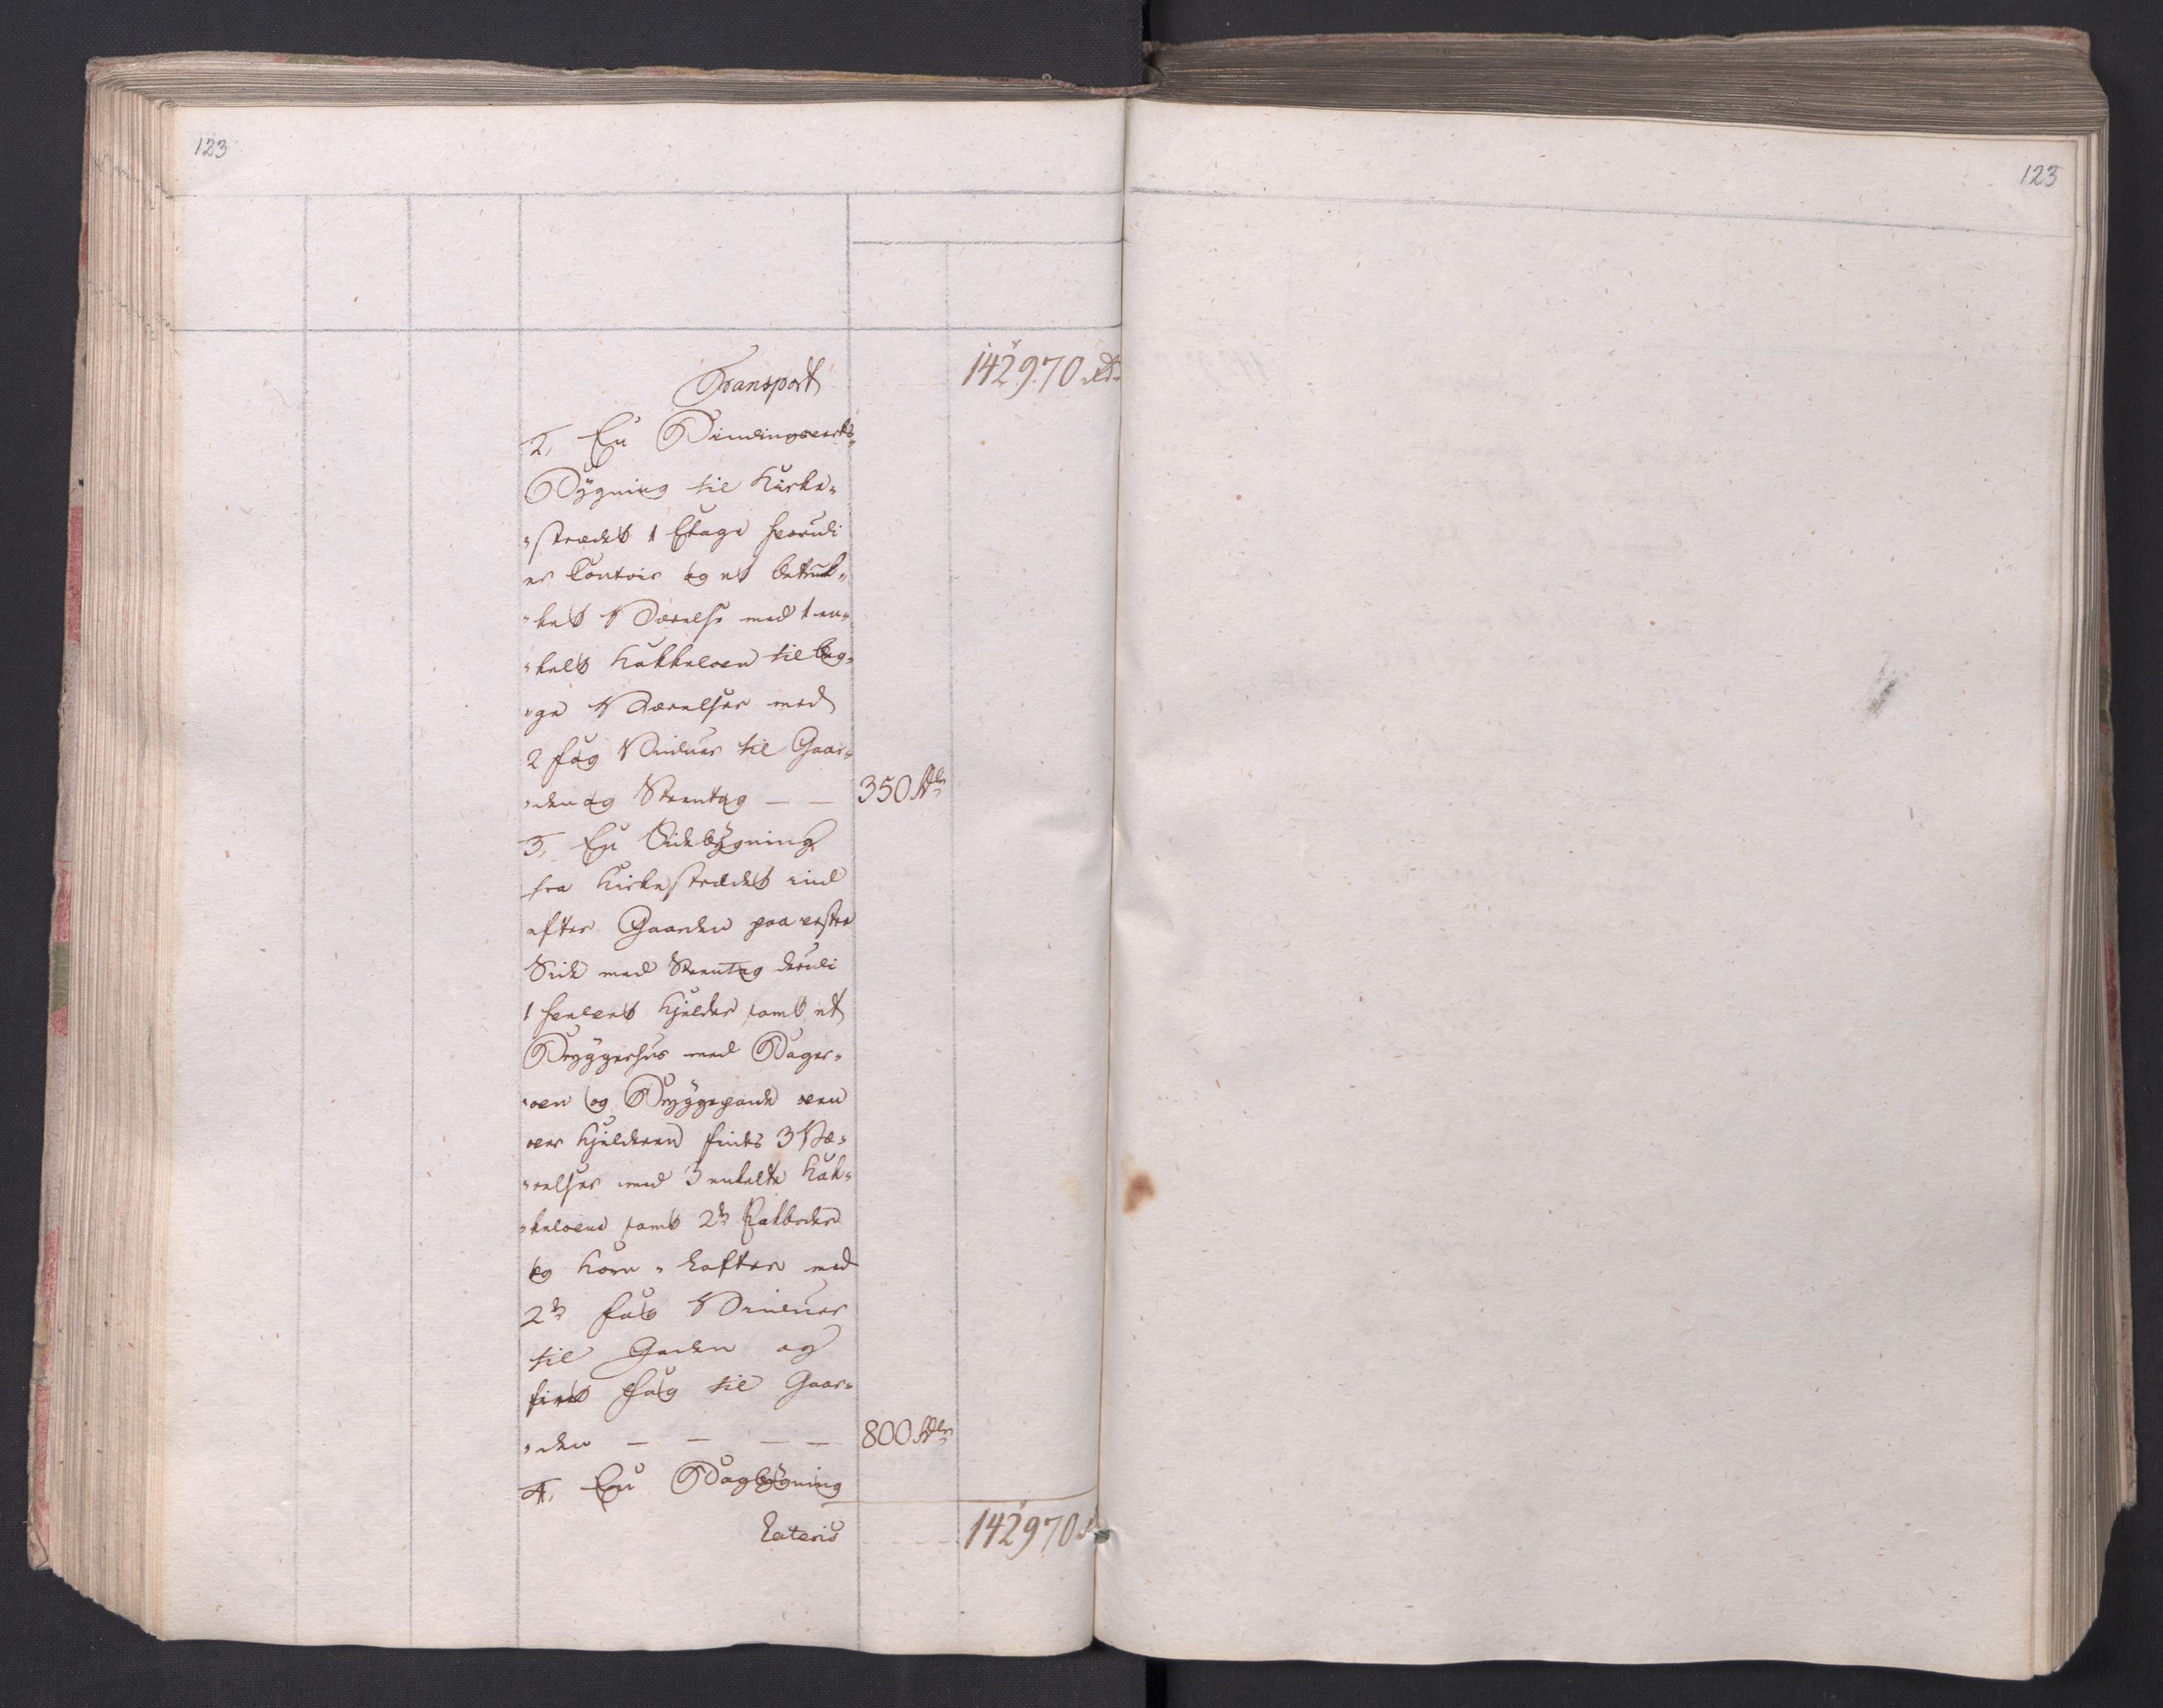 123
123
Transport 142970 rd.
2, En Bindingsverks-
Bÿgning til Kirke-
-strædet 1 Etage hvorudi
er Contoir og et betruk-
-ket Værelse med 1 en-
-kelt Kakkeloen til beg-
-ge Værelser med
2 fag Vinduer til Gaar-
-den og Steentag — — 350 Rdr
3, En Sidebÿgning
fra Kirkestrædet ind
efter Gaarden paa vestre
Side med Steentag derudi
1 hvelvet Kjelder samt et
Brÿggerhus med Bager-
-oen og Brÿggepande oven
over Kjelderen findes 3 Væ-
-relser med 3 enkelte Kak-
-keloene samt 2de Rulleboder
og Korn-Lofter med
2de fag Vinduer
til Gaden og
fiire fag til Gaar-
-den — — — — 800 Rdr
4, En Bagbÿgning
Lateris 142970